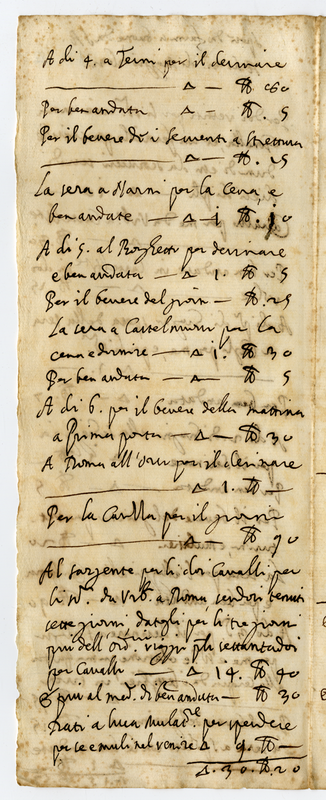 A di 4. a Terni per il desinare
——— ∆ — ₰ 60
Per ben andata ∆ — ₰. 5
Per il bevere di i serventi a Strettura
——— ∆ — ₰. 25
La sera a Narni per la cena, e
ben andate — ∆ 1 ₰. 10
A di 5. al Borghetto per desinare
e ben andata — ∆ 1. ₰ 5
Per il bevere del giorno — ₰. 25
La sera a Castelnuovo per la
cena e dormire — ∆ 1. ₰ 30
Per ben andata — ∆ — ₰ 5
A di 6. per il bevere della mattina
a Prima porta — ∆ — ₰ 30
A Roma all' per il desinare
——— ∆ 1. ₰ —
Per la per il giorno
——— ∆ ₰ 90
Al sorgente per li Cavalli, per
li da Urb.º a Roma
sette giorni per li tre giorni
più dell' ord.rio viaggio
per Cavalli — ∆ 14. ₰ 40
E più al med.º di ben andata — ₰ 30
Dati a Luca Mulat.re per spendere
per se e muli nel venire ∆ 9. ₰ —
∆. 30. ₰. 20